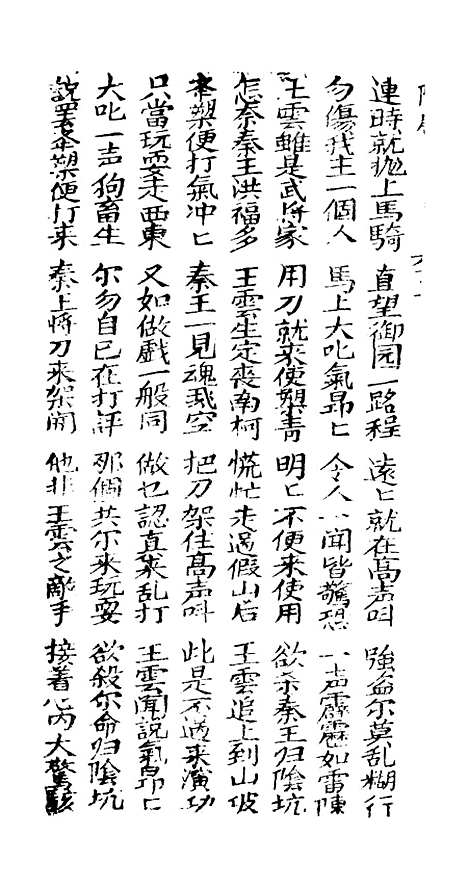 連時就抛上馬騎 直望御园一路程 遠匕就在高声呌 強盆尔莫乱糊行
勿傷我主一個人 馬上大叱氣昴匕 令人一聞皆驚恐 一声霹靂如雷陳
王雲雖是武將家 用刀就来使槊青 明匕不便来使用 欲杀秦王归陰坑
怎奈秦王洪福多 王雲生定喪南柯 慌忙走過假山后 王雲追上到山坡
槊便打氣冲匕 秦王一見魂我空 把刀架住高声呌 此是不過来演功
只當玩耍走西東 又如做戲一般同 做乜認真來乱打 王雲聞說氣昴匕
大叱一声狗畜生 尔勿自已在打評 那個共尔来玩耍 欲殺尔命归陰坑
說罢傘槊便打来 秦王將刀来架開 他非王雲之敵手 接着心内大驚駭